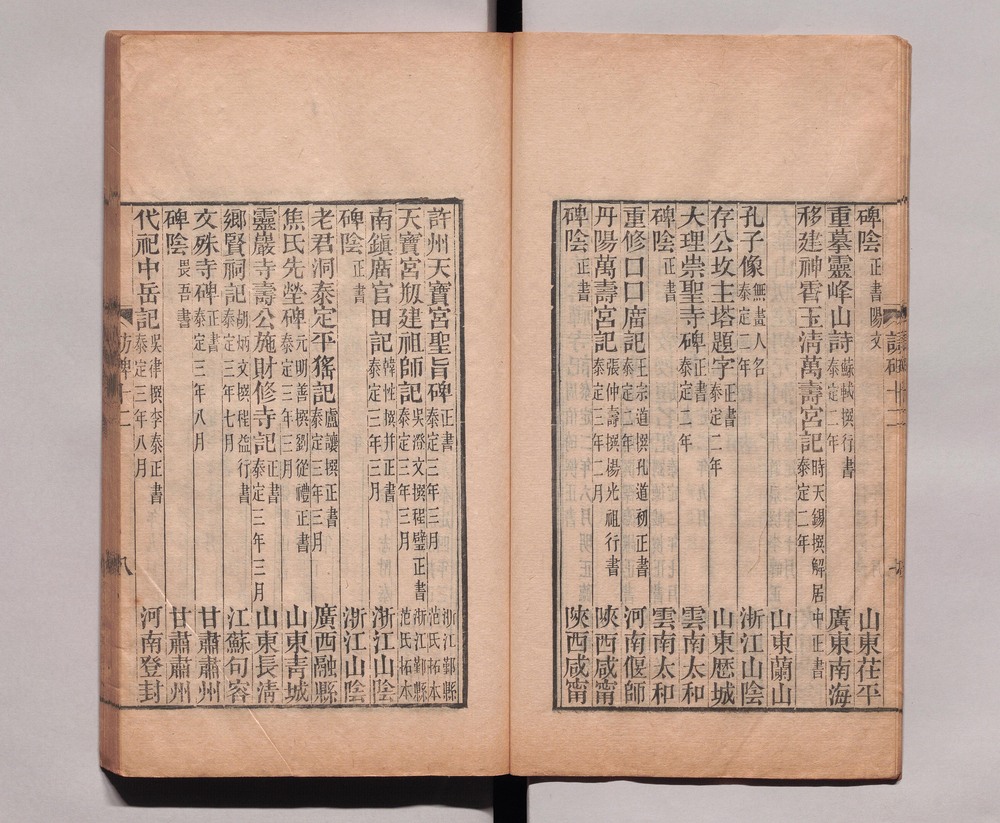 碑陰 正書陽文 山東茌平
重墓靈峰山詩 蘇軾撰行書 泰定二年 廣東南海
移建神霄玉清萬壽宮記 時天錫撰解居中正書 泰定二年 山東蘭山
孔子像 無畫人名 泰定二年 浙江山陰
存公坟主塔題字 正書 泰定二年 山東歷城
大理崇聖寺碑 正書 泰定二年 雲南太和
碑陰 正書 雲南太和
重修口口廟記 王宗道撰孔道礽正書 泰定二年 河南偃師
丹陽萬壽宮記 張仲壽撰楊光祖行書 泰定三年二月 陝西咸甯
碑陰 正書 陝西咸甯
許州天寶宮聖旨碑 正書 泰定三年三月 浙江鄞縣范氏拓本
天寶宮刱建祖師記 吳澄文撰程璧正書 泰定三年三月 浙江鄞縣范氏拓本
南鎮廣官田記 韓性撰并正書 泰定三年三月 浙江山陰
碑陰 正書 浙江山陰
老君洞泰定平猺記 盧讓撰正書 泰定三年三月 廣西融縣
焦氏先塋碑 元明善撰劉從禮正書 泰定三年三月 山東青城
靈巖寺壽公施財修寺記 正書 泰定三年三月 山東長清
鄉賢祠記 胡炳文撰程益行書 泰定三年七月 江蘇句容
文殊寺碑 正書 泰定三年八月 甘肅肅州
碑陰 畏吾書 甘肅肅州
代祀中岳記 吳律撰李泰正書 泰定三年八月 河南登封
訪碑十二 八